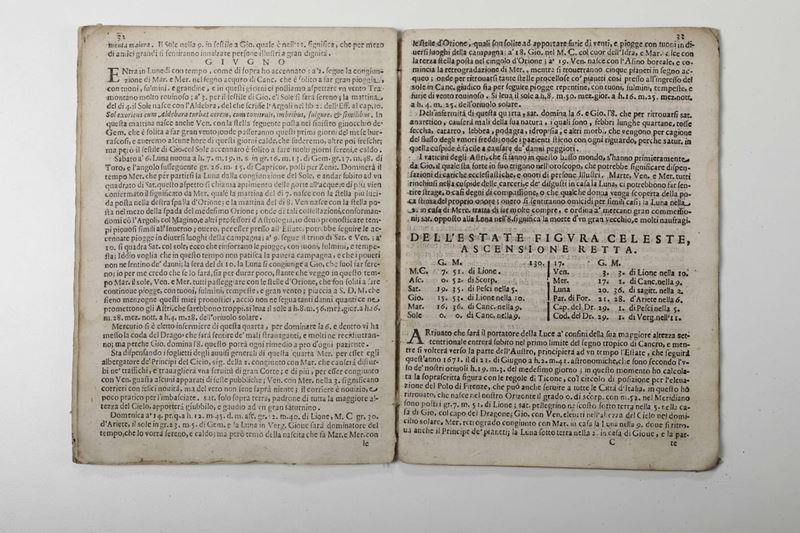 32
menta maiera. Il Sole nella 9. in sestile a Gio. quale è nell'11. significa, che per mezo
di amici grandi si sentiranno inalzate persone illustri a gran dignità.
GIVGNO
ENtra in Lunedì con tempo, come di sopra ho accennato; a'2. segue la congiun-
zione di Mar. e Mer. nel segno acqueo di Canc. che è solito a far gran pioggia,
con tuoni, fulmini, e grandine, e in questi giorni ci possiamo aspettare vn vento Tra-
montano molto rouinoso a'3. per il sestile di Gio. e'l Sole si farà sereno; la mattina,
del dì 4. il Sole nasce con l'Aldebara, del che scrisse l'Argoli nel lib 2. dell'Eff. al cap.10.
Sol exoriens cum Aldebora turbat aerem, cum tonitruis, imbribus, fulgure, & flatibus. In
questa mattina nasce anche Ven. con la stella seguente posta nel sinistro ginocchio de
Gem. che è solita a far gran vento; onde passeranno questi primi giorni del mese bur-
rascosi, e aueremo alcune hore di questi giorni calde, che suderemo, altre poi fresche;
ma però il sestile di Gio. col Sole accennato è solito a fare molti giorni sereni, e caldo.
Sabato a'6. Luna nuoua a h. 7. m.
Toro, e l'angolo susseguente gr. 26. m. 15. di Capricor. posti per Zenit. Dominerà il
tempo Mer. che per partirsi la Luna dalla congiunzione del Sole, e andar subito ad vn
quadrato di Sat. questo aspetto si chiama aprimento delle porte all'acque; di più vien
confermato il significato da Mer. quale la mattina del dì 7. nasce con la stella più luci-
da posta nella destra spalla d'Orione; e la mattina del dì 8. Ven nasce con la stella po-
sta nel mezo della spada del medesimo Orione; onde di tali constellazioni, conforman-
domi cō l'Argoli, col Magino, e altri professori d'Astrologia, ne deuo pronosticare tem-
pi piouosi simili al'Inuerno, e certo, per esser presso all'Estate, potrebbe seguire le ac-
cennate piogge in diuersi luoghi della campagna; a' 9. segue il trino di Sat. e Ven. a'
10. si quadra Sat. col sole, ecco che rinforzano le piogge, con tuoni, fulmini, e tempe-
sta; Iddio voglia che in questo tempo non patisca la pouera campagna, e che i poueri
non ne sentino de' danni; la sera del dì
ro; io per me credo che se lo farà, sia per durar poco, stante che veggo in questo tem-
po Mar. il sole, Ven. e Mer. tutti passeggiare con le stelle d'Orione, che son solite a fare
continoue piogge, con tuoni, fulmini, tempeste, e gran vento; piaccia a S. D. M. che
sieno menzogne questi miei pronostici, acciò non ne segua tanti danni quanti ce ne
promettono gli Astri, che sarebbeno troppo. si leua il sole a h.8.m.56.mez.gior.a.h.16.
m. 28. mez. nott. a h.4. m.28. dell'oriuolo solare.
Mercurio si è eletto infermiere di questa quarta, per dominare la 6. e dentro vi ha
messo la coda del Drago che farà sentire de' mali strauaganti, e molti ne rechiuttran-
no; ma perche Gio. domina l'8. questo porrà ogni rimedio a pro d'ogni paziente.
Sta dispensando i foglietti degli auuisi generali di questa quarta Mer. per esser egli
albergatore de' Principi del Cielo, sig. della 2. congiunto con Mar. che causerà distur-
bi ne' traffici, e trauaglierà vna seruitù di gran Corte; e di più, per esser congiunto
con Ven. guasta alcuni apparati di feste pubbliche; Ven. con Mer. nella 3. significanti
corrieri con felici nouità, ma del resto non sene saprà niente; il correre è nottizie, e
poco pratico per l'imbalciate, sat. solo sopra terra, padrone di tutta la maggiore al-
tezza del Cielo, apporterà giubbilo, e guadio ad vn gran saturnino.
Domenica a' 14. pr. q. a h. 2. m. 45. d. m. aff. gr. 12. m. 40. di Lione, M. C gr. 30.
d'Ariete, il sole in gr. 23. m. 5. di Gem. e la Luna in Verg. Gioue sarà dominatore del
tempo, che lo vorrà sereno, e caldo; ma però temo della nascita che fà Mar. e Mer. con
le
33
le stelle d'Orione, quali son solite ad apportare furie di venti, e piogge con tuoni in di-
uersi luoghi della campagna; a' 18. Gio. nel M. C. col cuor dell'Idra, e Mar. e Ice con
la terza stella posta nel cingolo d'Orione; a' 19. Ven. nasce con l'Asino boreale, e co-
mincia la retrogradazione di Mer. mentre si troueranno cinque pianeti in segno ac-
queo; onde per ritrouarsi tante stelle procellose co' pianeti così presso all'ingresso del
sole in Canc. giudico sia per seguire piogge repentine, con tuoni, fulmini, tempeste, e
furie di vento rouinoso. Si leua il sole a h.8. m. 50. mez. gior. a h.16. m. 25. mez. nott.
a h. 4. m. 25. dell'oriuolo solare.
Dell'infermità di questa quarta, sat. domina la 6. e Gio. l'8. che per ritrouarsi sat.
anaretico, causerà mali della sua natura, i quali sono, febbri lunghe quartane, tosse
secche, catarro, lebbra, podagra, idropisia, e altri morbi, che vengono per cagione
del flusso degli vmori freddi; onde i pazienti stieno con ogni riguardo, perche satur. in
questa cuspide è facile a causare de' danni peggiori.
I vaticini degli Astri, che si fanno in questo basso mondo, s'hanno primieramente
da Gio. il quale sta forte in angolo originato nell'oroscopo, che potrebbe significare dispen-
sazioni di cariche ecclesiastiche, e onori di persone illustri. Marte, Ven. e Mer. tutti
rinchiusi nella cuspide delle carceri, e de' disgusti in casa la Luna, ci potrebbono far sen-
tire strage, o casi degni di compassione, o che qualche donna tenga scoperta della po-
ca stima del proprio onore; ouero si sentiranno omicidi per simili casi; la Luna nella
2. in casa di Mere. tratta di far molte compre, e ordina a' mercanti gran commessio-
ni; sat. opposto alla Luna nell'8. significa la morte d'vn gran vecchio, e molti naufragi.
DELL'ESTATE FIGVRA CELESTE,
ASCENSIONE RETTA.
G. M. 130. 17. G. M.
M.C. 7. 51. di Lione. Ven. 3. 3. di Lione nella 10.
Asc. 0. 52. di Scorp. Mer. 17. 1. di Canc. nella 9.
Sat. 19. 35. di Pesci nella 5. Luna 20. 36. di sagitt. nella 2.
Gio. 15. 53. di Lione nella 10. Par. di For. 21. 28. d'Ariete nella 6.
Mar. 16. 36. di Canc. nella 9. Cap. del Dr. 29. 1. di Pesci nella 5.
Sole 0. 0. di Canc. nella 9. Cod. del Dr. 29. 1. di Verg. nell'11.
ARriuato che sarà il portatore della Luce a' confini della sua maggiore altezza set-
tentrionale entrerà subito nel primo limite del segno tropico di Cancro, e men-
tre si volterà verso la parte dell'Austro, principierà ad vn tempo l'Estate, che seguirà
quest'anno 1671. il dì 21. di Giugno a h.2. m.41. astronomiche, che sono secondo l'v-
so de' nostri oriuoli h.19. m.3. del medesimo giorno; in questo momento hò calcola-
ta la soprascritta figura con le regole di Ticone, col circolo di posizione per l'eleua-
zione del Polo di Firenze, che può anche seruire a tutte le Città d'Italia, in questo hò
ritrouato, che nasce nel nostro Orizonte il grado 0. di scorp. con m.52. nel Meridiano
sono posti gr.7. m. 51. di Lione; sat. pellegrino nascosto sotto terra nella 5. nella ca-
sa di Gio. col capo del Dragone; Gio. con Ven. eleuati nell'altezza del Cielo nel domi-
cilio solare, Mer. retrogrado congiunto con Mar. in casa la Luna nella 9. doue si ritro-
ua anche il Principe de' pianeti; la Luna sotto terra nella 2. in casa di Gioue, e la par-
C te